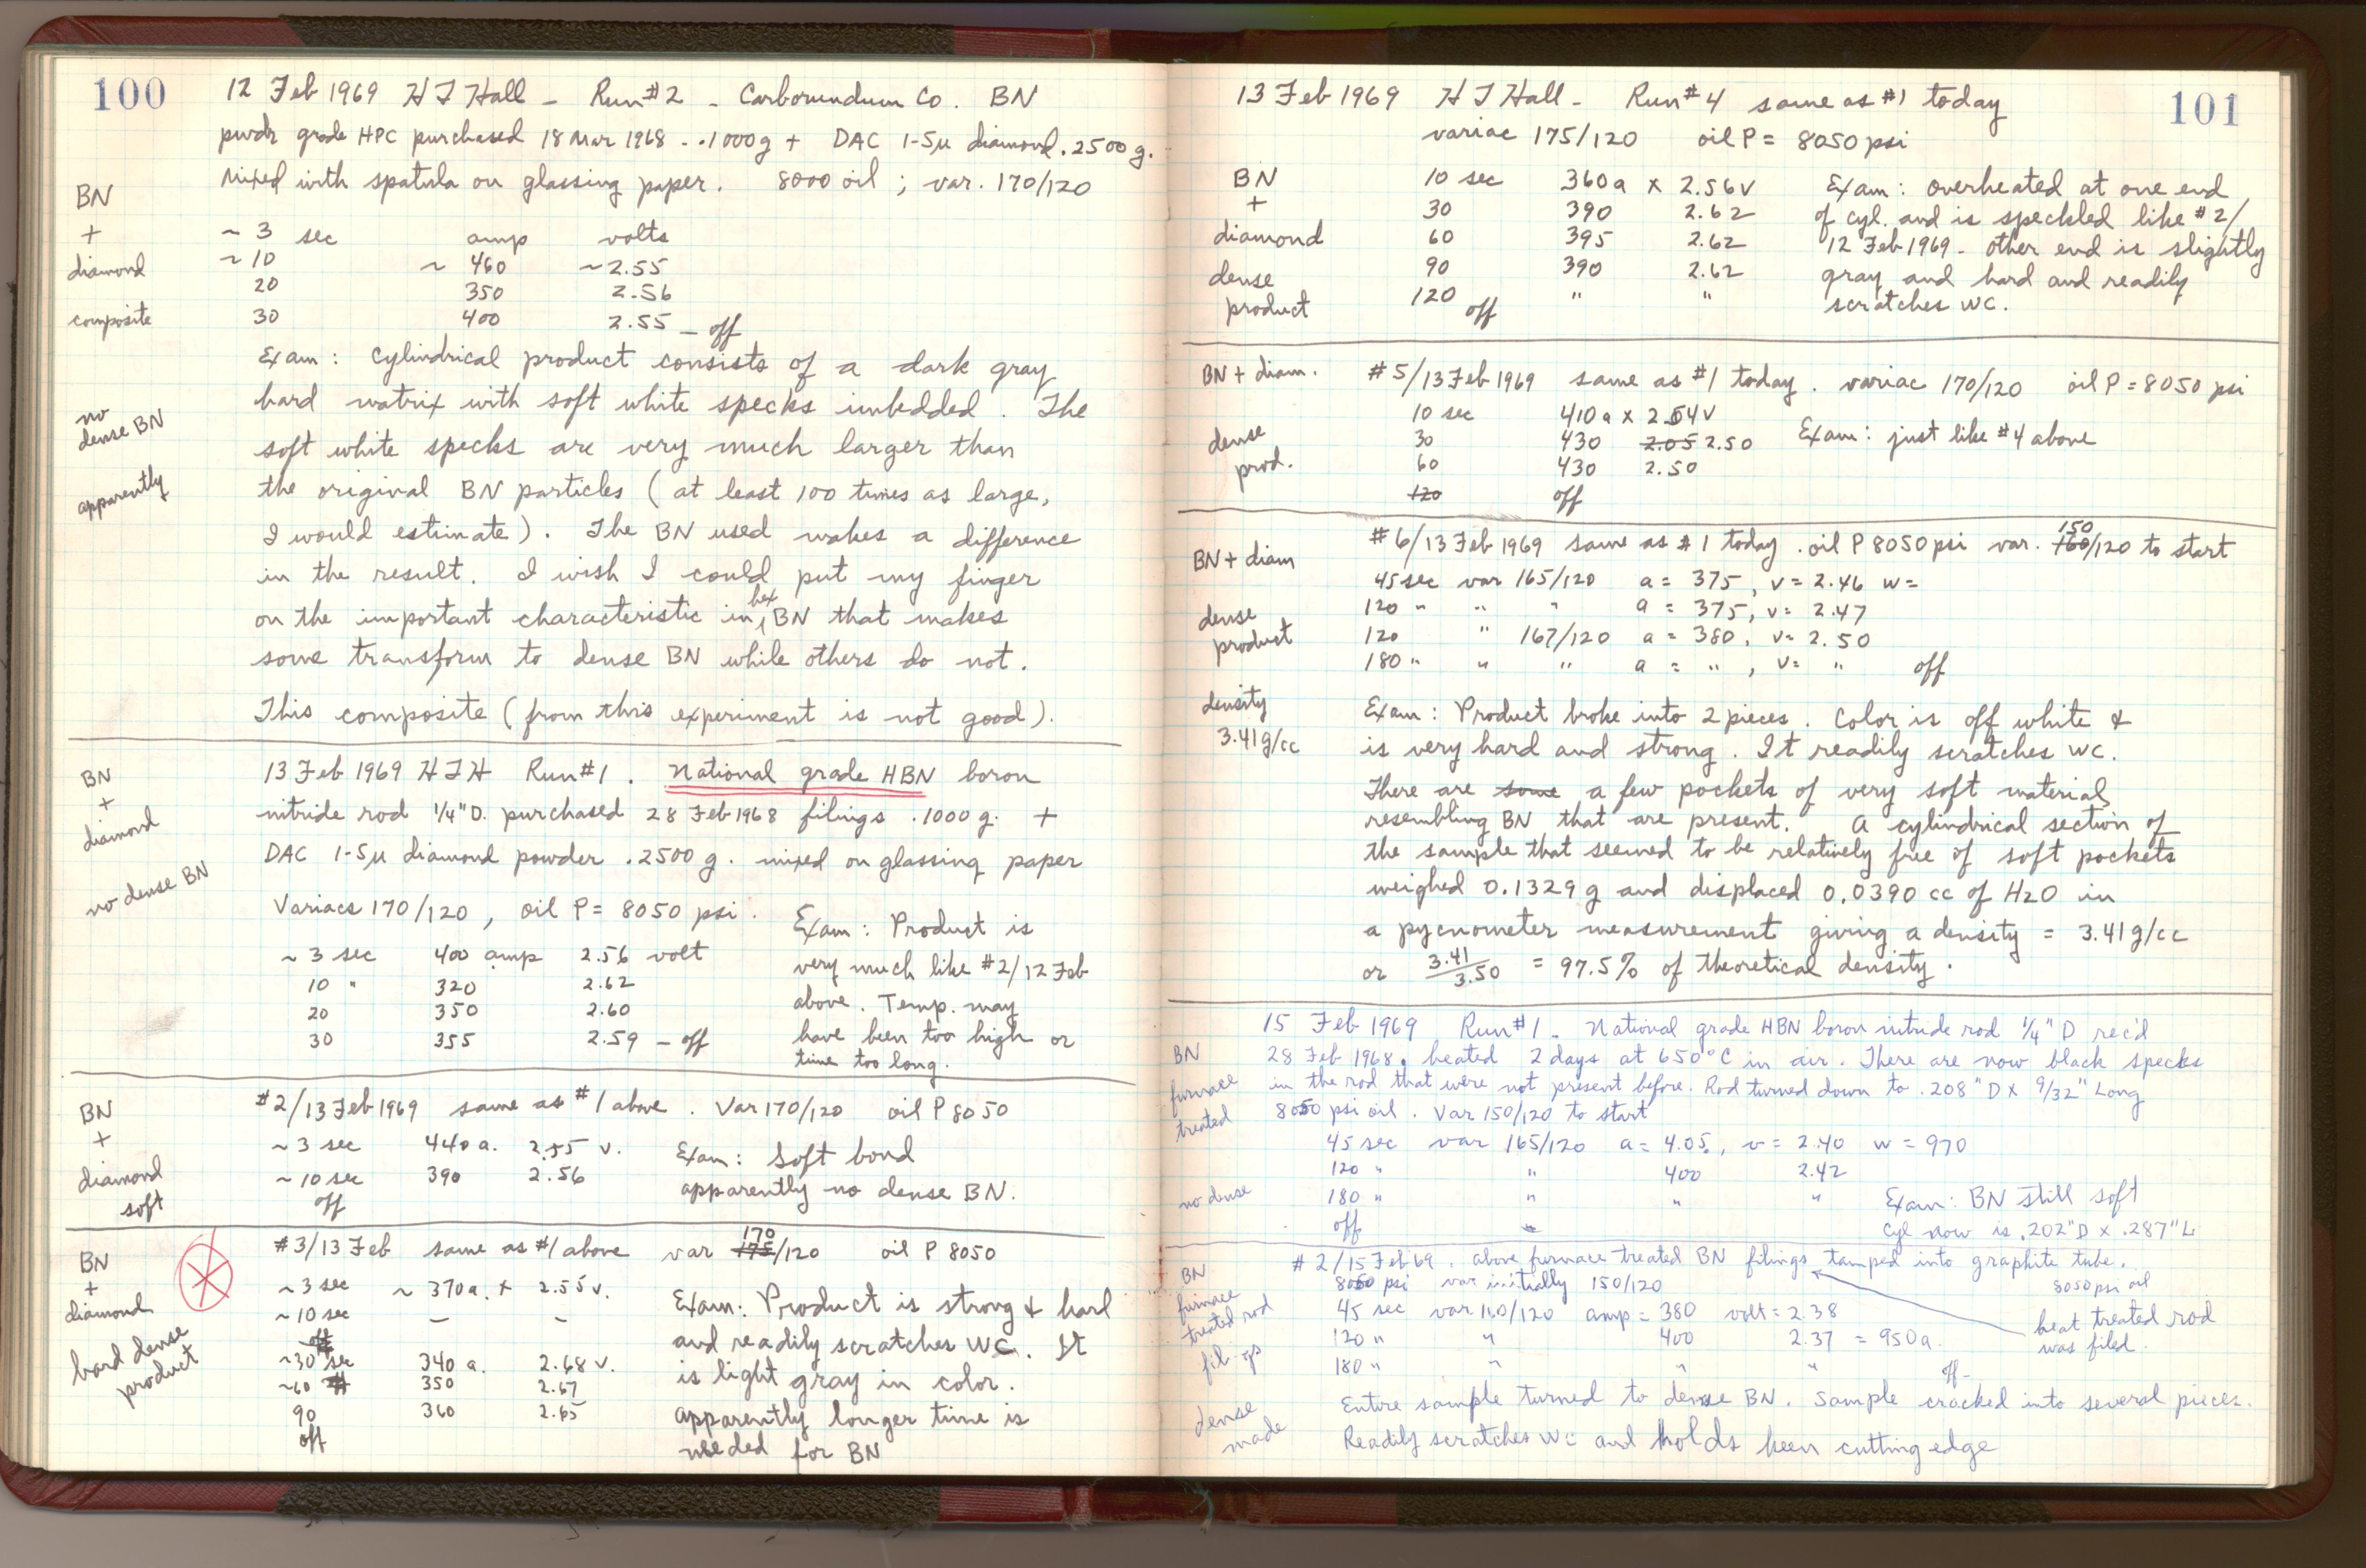 100
12 Feb 1969 H T Hall - Run #2 - Carborundum Co. BN
pwdr grade HPC purchased 18 Mar 1968 - .1000g + DAC 1-5µ diamond .2500 g.
Mixed with spatula on glassing paper. 8000 oil ; var. 170/120
BN
+
diamond
composite
~ 3 sec amp volts
~ 10 ~ 460 ~2.55
20 350 2.56
30 400 2.55 - off
Exam : Cylindrical product consists of a dark gray
hard matrix with soft white specks imbedded. The
no
dense BN
apparently
soft white specks are very much larger than
the original BN particles (at least 100 times as large,
I would estimate). The BN used makes a difference
in the result. I wish I could put my finger
on the important characteristic in hex BN that makes
some transform to dense BN while others do not.
This composite (from this experiment is not good).
BN
+
diamond
no dense BN
13 Feb 1969 HTH Run #1. National grade HBN boron
nitride rod 1/4" D. purchased 28 Feb 1968 filings .1000 g. +
DAC 1-5µ diamond powder .2500 g. mixed on glassing paper
Variacs 170/120, oil P = 8050 psi.
~ 3 sec 400 amp 2.56 volt
10 " 320 2.62
20 350 2.60
30 355 2.59 - off
Exam : Product is
very much like #2/12 Feb
above. Temp. may
have been too high or
time too long.
BN
+
diamond
soft
#2/13 Feb 1969 same as #1 above. Var 170/120 oil P 8050
~ 3 sec 440 a. 2.55 v.
~ 10 sec 390 2.56
off
Exam : Soft bond
apparently no dense BN.
BN
+
diamond
hard dense
product
#3/13 Feb same as #1 above var 175 170/120 oil P 8050
~ 3 sec ~ 370 a. x 2.55 v.
~ 10 sec - -
off
~30 sec 340 a. 2.68 v.
~60 350 2.67
90 360 2.65
off
Exam : Product is strong & hard
and readily scratches WC. It
is light gray in color.
apparently longer time is
needed for BN
101
13 Feb 1969 H T Hall - Run #4 same as #1 today
variac 175/120 oil P = 8050 psi
BN
+
diamond
dense
product
10 sec 360a x 2.56v
30 390 2.62
60 395 2.62
90 390 2.62
120 " "
off
Exam : overheated at one end
of cyl. and is speckled like #2/
12 Feb 1969 - other end is slightly
gray and hard and readily
scratches WC.
BN + diam.
dense
prod.
#5/13 Feb 1969 same as #1 today. variac 170/120 oil P = 8050 psi
10 sec 410 a x 2.54v
30 430 2.05 2.50
60 430 2.50
120 off
Exam : just like #4 above
BN + diam
dense
product
density
3.41 g/cc
#6/13 Feb 1969 same as #1 today. oil P 8050 psi var. 160 150/120 to start
45 sec var 165/120 a = 375, v = 2.46 w =
120 " " " a = 375, v = 2.47
120 " 167/120 a = 380, v = 2.50
180 " " " a = ", v = " off
Exam : Product broke into 2 pieces. Color is off white &
is very hard and strong. It readily scratches WC.
There are some a few pockets of very soft material
resembling BN that are present. A cylindrical section of
the sample that seemed to be relatively free of soft pockets
weighed 0.1329 g and displaced 0.0390 cc of H2O in
a pycnometer measurement giving a density = 3.41 g/cc
or 3.41/3.50 = 97.5% of theoretical density.
BN
furnace
treated
no dense
15 Feb 1969 Run #1 - National grade HBN boron nitride rod 1/4" D rec'd
28 Feb 1968. heated 2 days at 650°C in air. There are now black specks
in the rod that were not present before. Rod turned down to .208" D x 9/32" Long
8050 psi oil. Var 150/120 to start
45 sec var 165/120 a = 4.05, v = 2.40 w = 970
120 " " 400 2.42
180 " " " "
off
Exam : BN still soft
Cyl now is .202" D x .287" L
BN
furnace
treated rod
filings
dense
made
#2/15 Feb 69. above furnace treated BN filings tamped into graphite tube.
8050 psi var initially 150/120 8050 psi oil
45 sec var 160/120 amp = 380 volt = 2.38
120 " " 400 2.37 = 950 a.
180 " " " " off -
heat treated rod
was filed.
Entire sample turned to dense BN. Sample cracked into several pieces.
Readily scratches WC and holds keen cutting edge